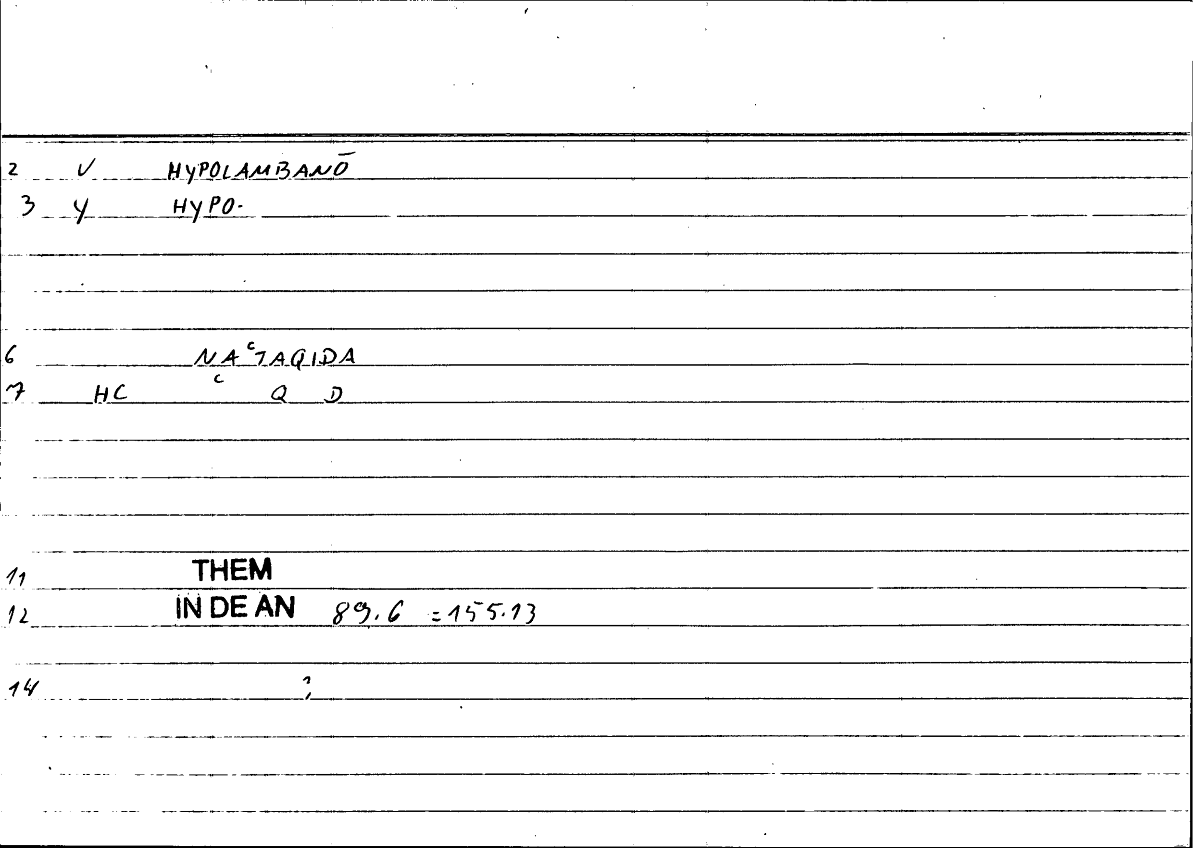 2 V HYPOLAMBANŌ
3 Y HYPO-
6 NAʿTAQIDA
7 HC ʿ Q D
11 THEM
12 IN DE AN 89.6 =155.13
14 ?